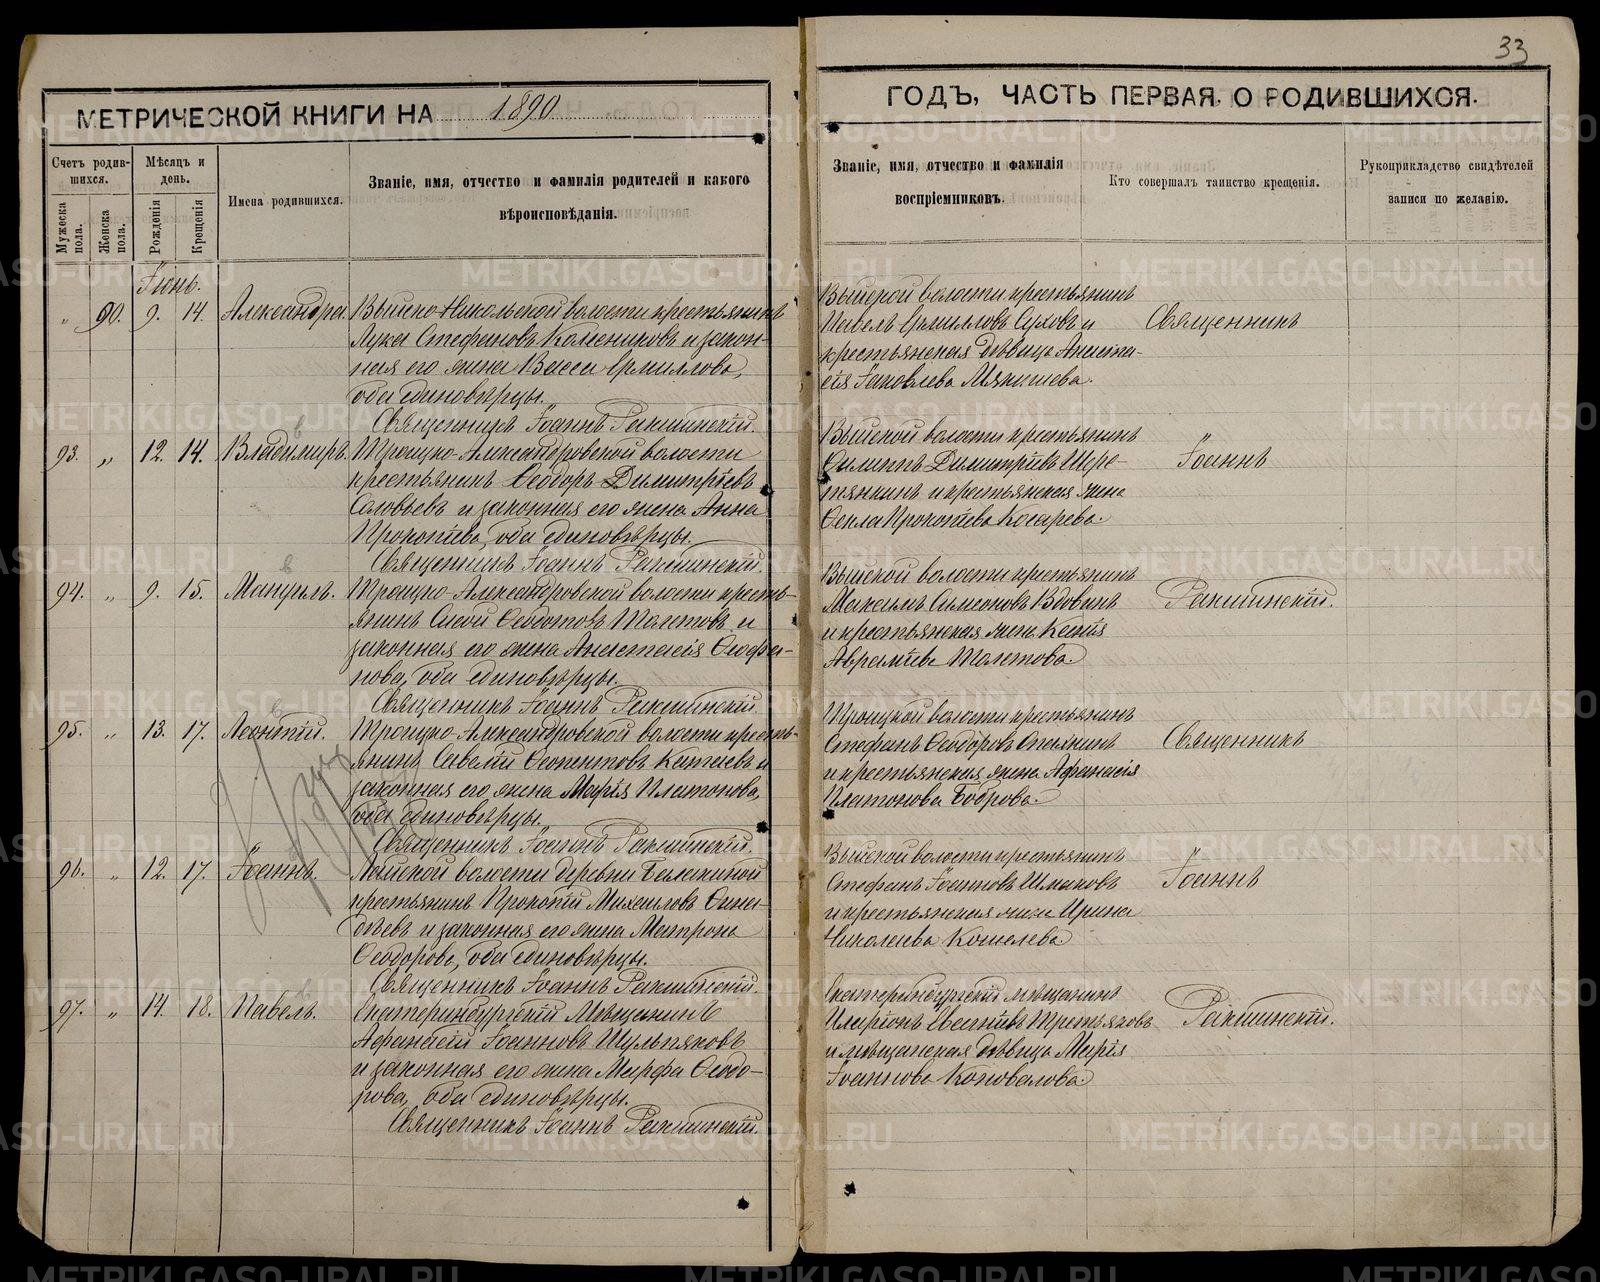 33
МЕТРИЧЕСКОЙ КНИГИ НА 1890
ГОДЪ, ЧАСТЬ ПЕРВАЯ, О РОДИВШИХСЯ.
Счетъ родив-
шихся.
Мужеска
пола.
Женска
пола.
Мѣсяцъ и
день.
Рожденія
Крещенія
Имена родившихся.
Званіе, имя, отчество и фамилія родителей и какого
вѣроисповѣданія.
Званіе, имя, отчество и фамилія
воспріемниковъ.
Кто совершалъ таинство крещенія.
Рукоприкладство свидѣтелей
записи по желанію.
Іюнь.
" 90. 9. 14. Александра.
Выйско-Никольской волости крестьянинъ
Лука Стефановъ Колесниковъ и закон-
ная его жена Васса Ермиллова,
оба единовѣрцы.
Священникъ Іоаннъ Ракшинскій.
Выйской волости крестьянинъ
Павелъ Ермилловъ Суховъ и
крестьянская дѣвица Анаста-
сія Іаковлева Мякишева.
Священникъ
93. " 12. 14. Владимиръ.
Троицко-Александровской волости
крестьянинъ Ѳеодоръ Димитріевъ
Соловьевъ и законная его жена Анна
Прокопіева, оба единовѣрцы.
Священникъ Іоаннъ Ракшинскій.
Выйской волости крестьянинъ
Филиппъ Димитріевъ Шере-
и крестьянская жена
Ѳекла Прокопіева Косарева.
Іоаннъ
94. " 9. 15. Мануилъ.
Троицко-Александровской волости кресть-
янинъ Ѳеодотовъ и
законная его жена Анастасія Ѳеофа-
нова, оба единовѣрцы.
Священникъ Іоаннъ Ракшинскій.
Выйской волости крестьянинъ
Максимъ Симеоновъ Вдовинъ
и крестьянская жена Ксенія
Авраміева
Ракшинскій.
95. " 13. 17. Леонтій.
Троицко-Александровской волости кресть-
янинъ Савелій Катаевъ и
законная его жена Марія Платонова,
оба единовѣрцы.
Священникъ Іоаннъ Ракшинскій.
Троицкой волости крестьянинъ
Стефанъ Ѳеодоровъ
и крестьянская жена Афанасія
Платонова Боброва.
Священникъ
96. " 12. 17. Іоаннъ.
Лайской волости деревни Балакиной
крестьянинъ Прокопій Михаиловъ
и законная его жена Матрона
Ѳеодорова, оба единовѣрцы.
Священникъ Іоаннъ Ракшинскій.
Выйской волости крестьянинъ
Стефанъ Іоанновъ Шмаковъ
и крестьянская жена Ирина
Николаева Кошелева.
Іоаннъ
97. " 14. 18. Павелъ.
Екатеринбургскій Мѣщанинъ
Афанасій Іоанновъ Шульпяковъ
и законная его жена Марфа Ѳеодо-
рова, оба единовѣрцы.
Священникъ Іоаннъ Ракшинскій.
Екатеринбургскій мѣщанинъ
Иларіонъ Третьяковъ
и мѣщанская дѣвица Марія
Іоаннова Коновалова.
Ракшинскій.
METRIKI.GASO-URAL.RU